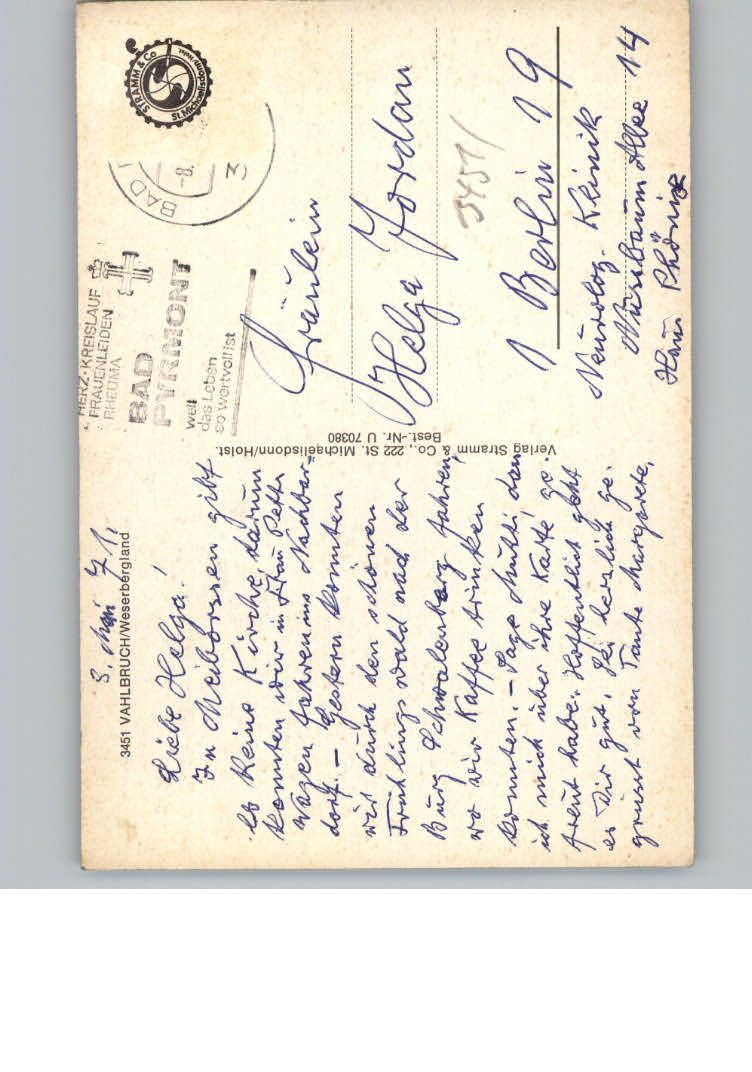 3451 VAHLBRUCH/Weserbergland
8. Mai 71.
Liebe Helga!
In Meiborssen gibt
es keine Kirche, darum
konnten wir in Frau
Wagen fahren ins Nachbar=
dorf. – Gestern konnten
wir durch den schönen
Frühlingswald nach der
Burg Schwalenberg fahren,
wo wir Kaffee trinken
konnten. – Sage Mutti dass
ich mich über ihre Karte ge-
freut habe. Hoffentlich geht
es Dir gut. Sei herzlich ge-
grüsst von Tante Margarete,
Verlag Stramm & Co., 222 St. Michaelisdonn/Holst.
Best.-Nr. U 70380
HERZ·KREISLAUF
FRAUENLEIDEN
RHEUMA
BAD
PYRMONT
weil
das Leben
so wertvoll ist
BAD
-8.
3
STRAMM & Co
St. Michaelisdonn
Fräulein
Helga Jordan
3451/
1 Berlin 19
Neurolog. Klinik
Nussbaum Allee 14
Haus Phönix